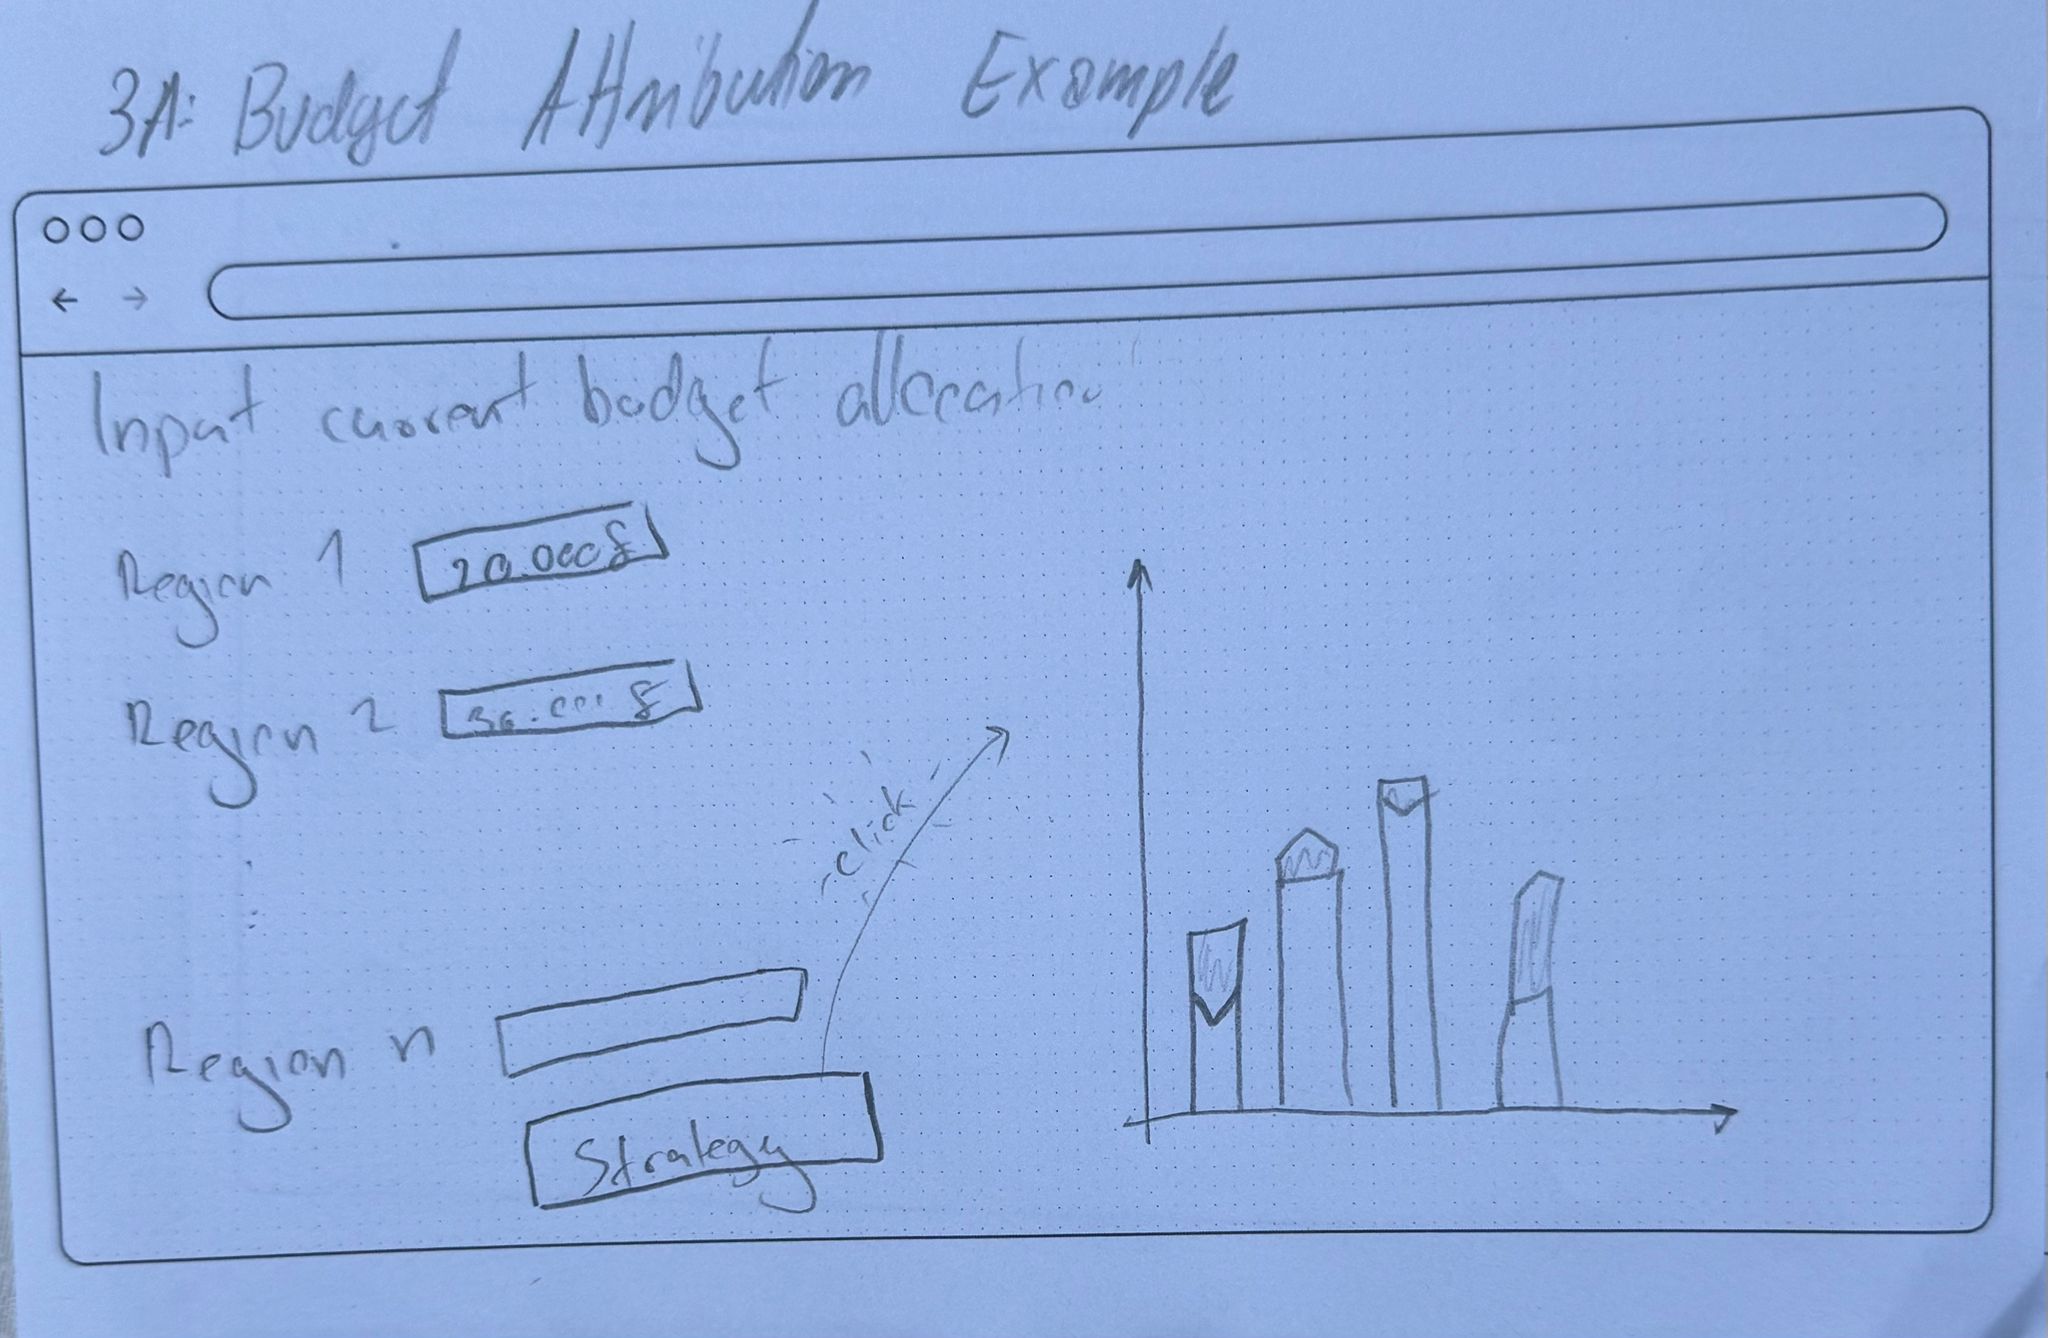 3A: Budget Attribution Example
Input current budget allocation
Region 1 20.000$
Region 2 30.000$
click
Region n
Strategy